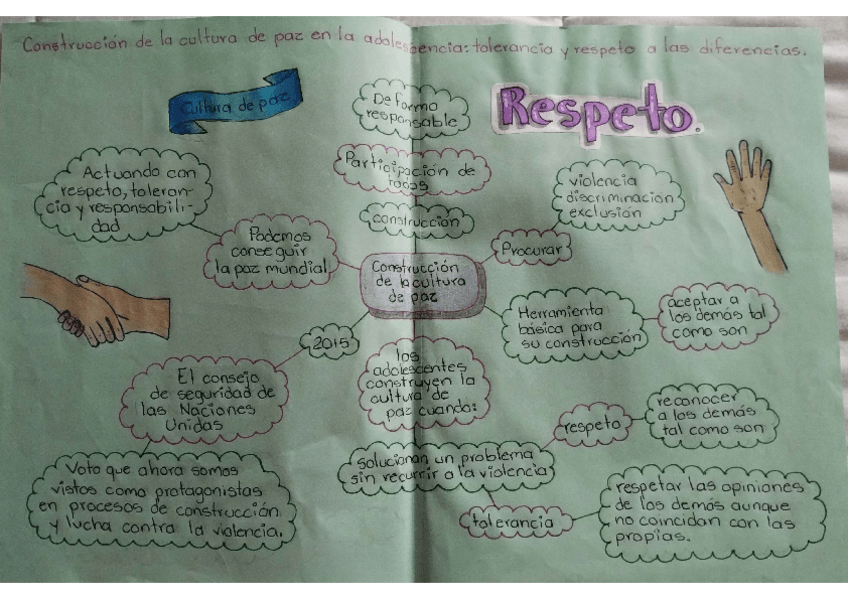 Construcción de la cultura de paz en la adolescencia: tolerancia y respeto a las diferencias.
Cultura de paz
De forma
responsable
Respeto.
Participación de
todos
construcción
Actuando con
respeto, toleran-
cia y responsabili-
dad
Podemos
conseguir
la paz mundial
Construcción
de la cultura
de paz
Procurar
violencia
discriminación
exclusión
Herramienta
básica para
su construcción
aceptar a
los demás tal
como son
2015
El consejo
de seguridad de
las Naciones
Unidas
Voto que ahora somos
vistos como protagonistas
en procesos de construcción
y lucha contra la violencia.
los
adolescentes
construyen la
cultura de
paz cuando:
solucionan un problema
sin recurrir a la violencia
respeto
reconocer
a los demás
tal como son
tolerancia
respetar las opiniones
de los demás aunque
no coincidan con las
propias.